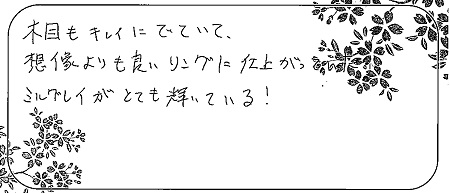 木目もキレイにでていて、
想像よりも良いリングに仕上がっ
ミルグレイがとても輝いている!